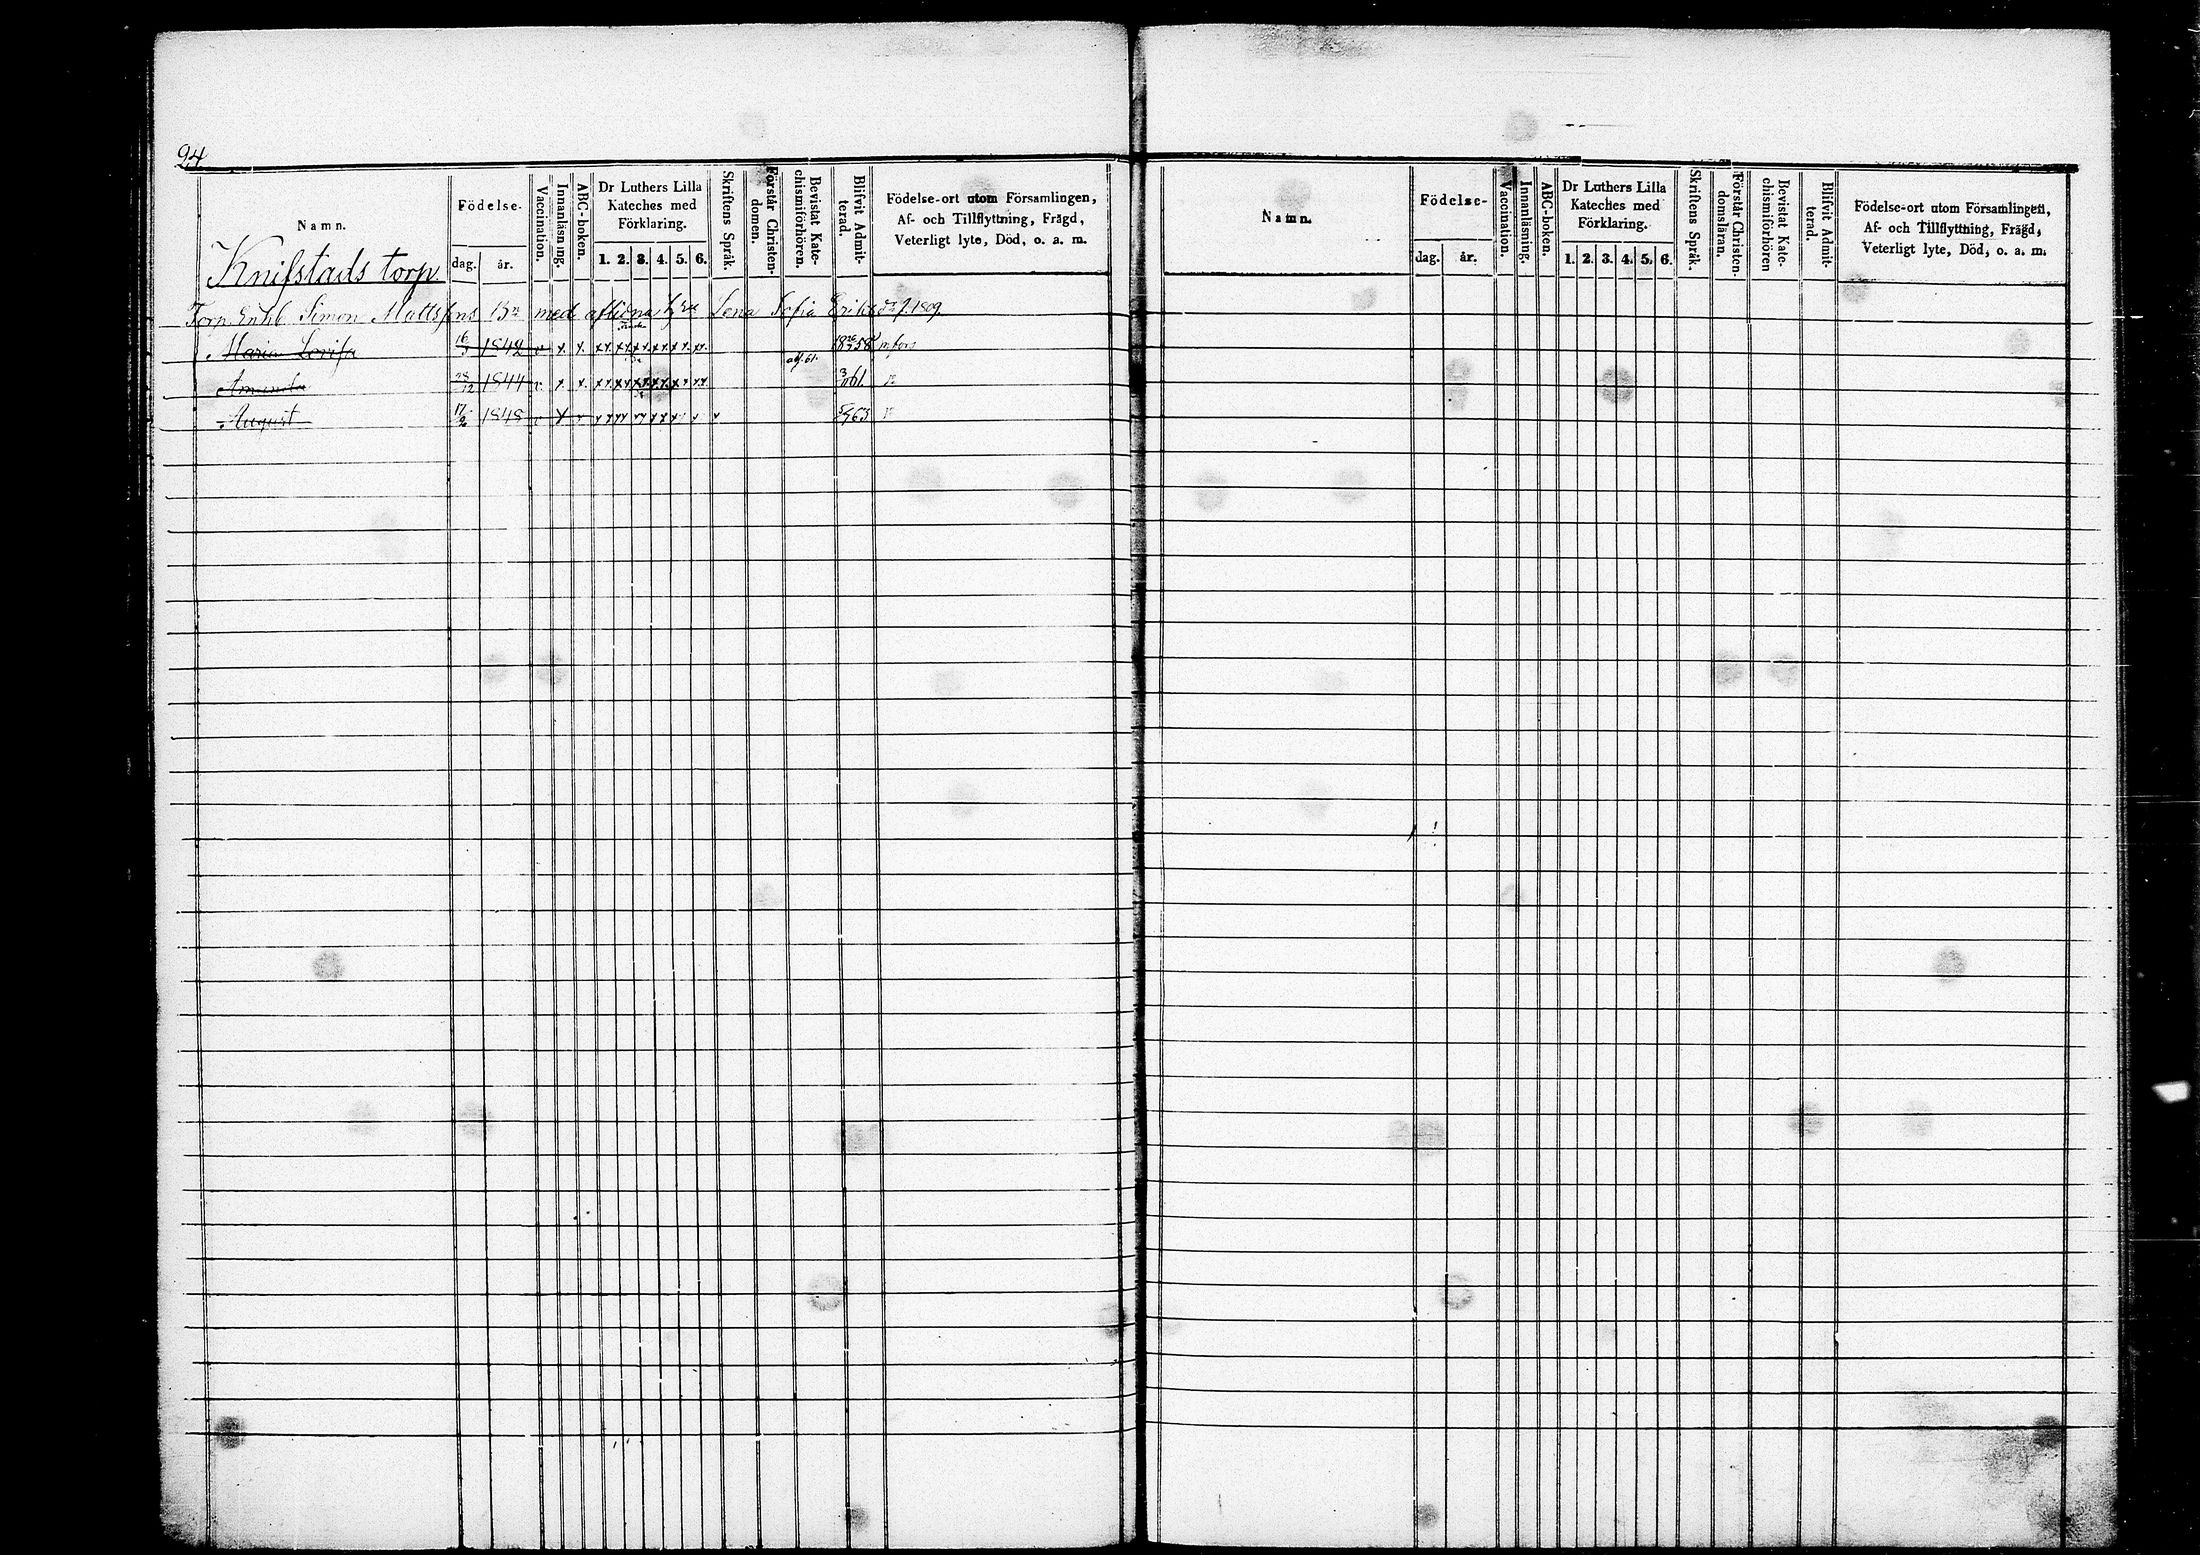 24
Namn.
Födelse.
dag. år.
Vaccination.
Innanläsning.
ABC-boken.
Dr Luthers Lilla
Kateches med
Förklaring.
1. 2. 3. 4. 5. 6.
Skriftens Språk.
Förstår Christen-
domen.
Bevistat Kate-
chismiförhören.
Blifvit Admit-
terad.
Födelse-ort utom Församlingen,
Af- och Tillflyttning, Frägd,
Veterligt lyte, Död, o. a. m.
Knifstads torp
Torp. Enkl. Simon Mattsons Bn med aflidna h. Lena Sofia f. 1809.
Maria Lovisa 16/3 1842 v x x 58
adf. 61.
Amanda 28/12 1844 v. x x. 61.
August 17/2 1848 v x v 63
Namn.
Födelse-
dag. år.
Vaccination.
Innanläsning.
ABC-boken.
Dr Luthers Lilla
Kateches med
Förklaring.
1. 2. 3. 4. 5. 6.
Skriftens Språk.
Förstår Christen-
domsläran.
Bevistat Kate-
chismiförhören
Blifvit Admit-
terad.
Födelse-ort utom Församlingen,
Af- och Tillflyttning, Frägd,
Veterligt lyte, Död, o. a. m.